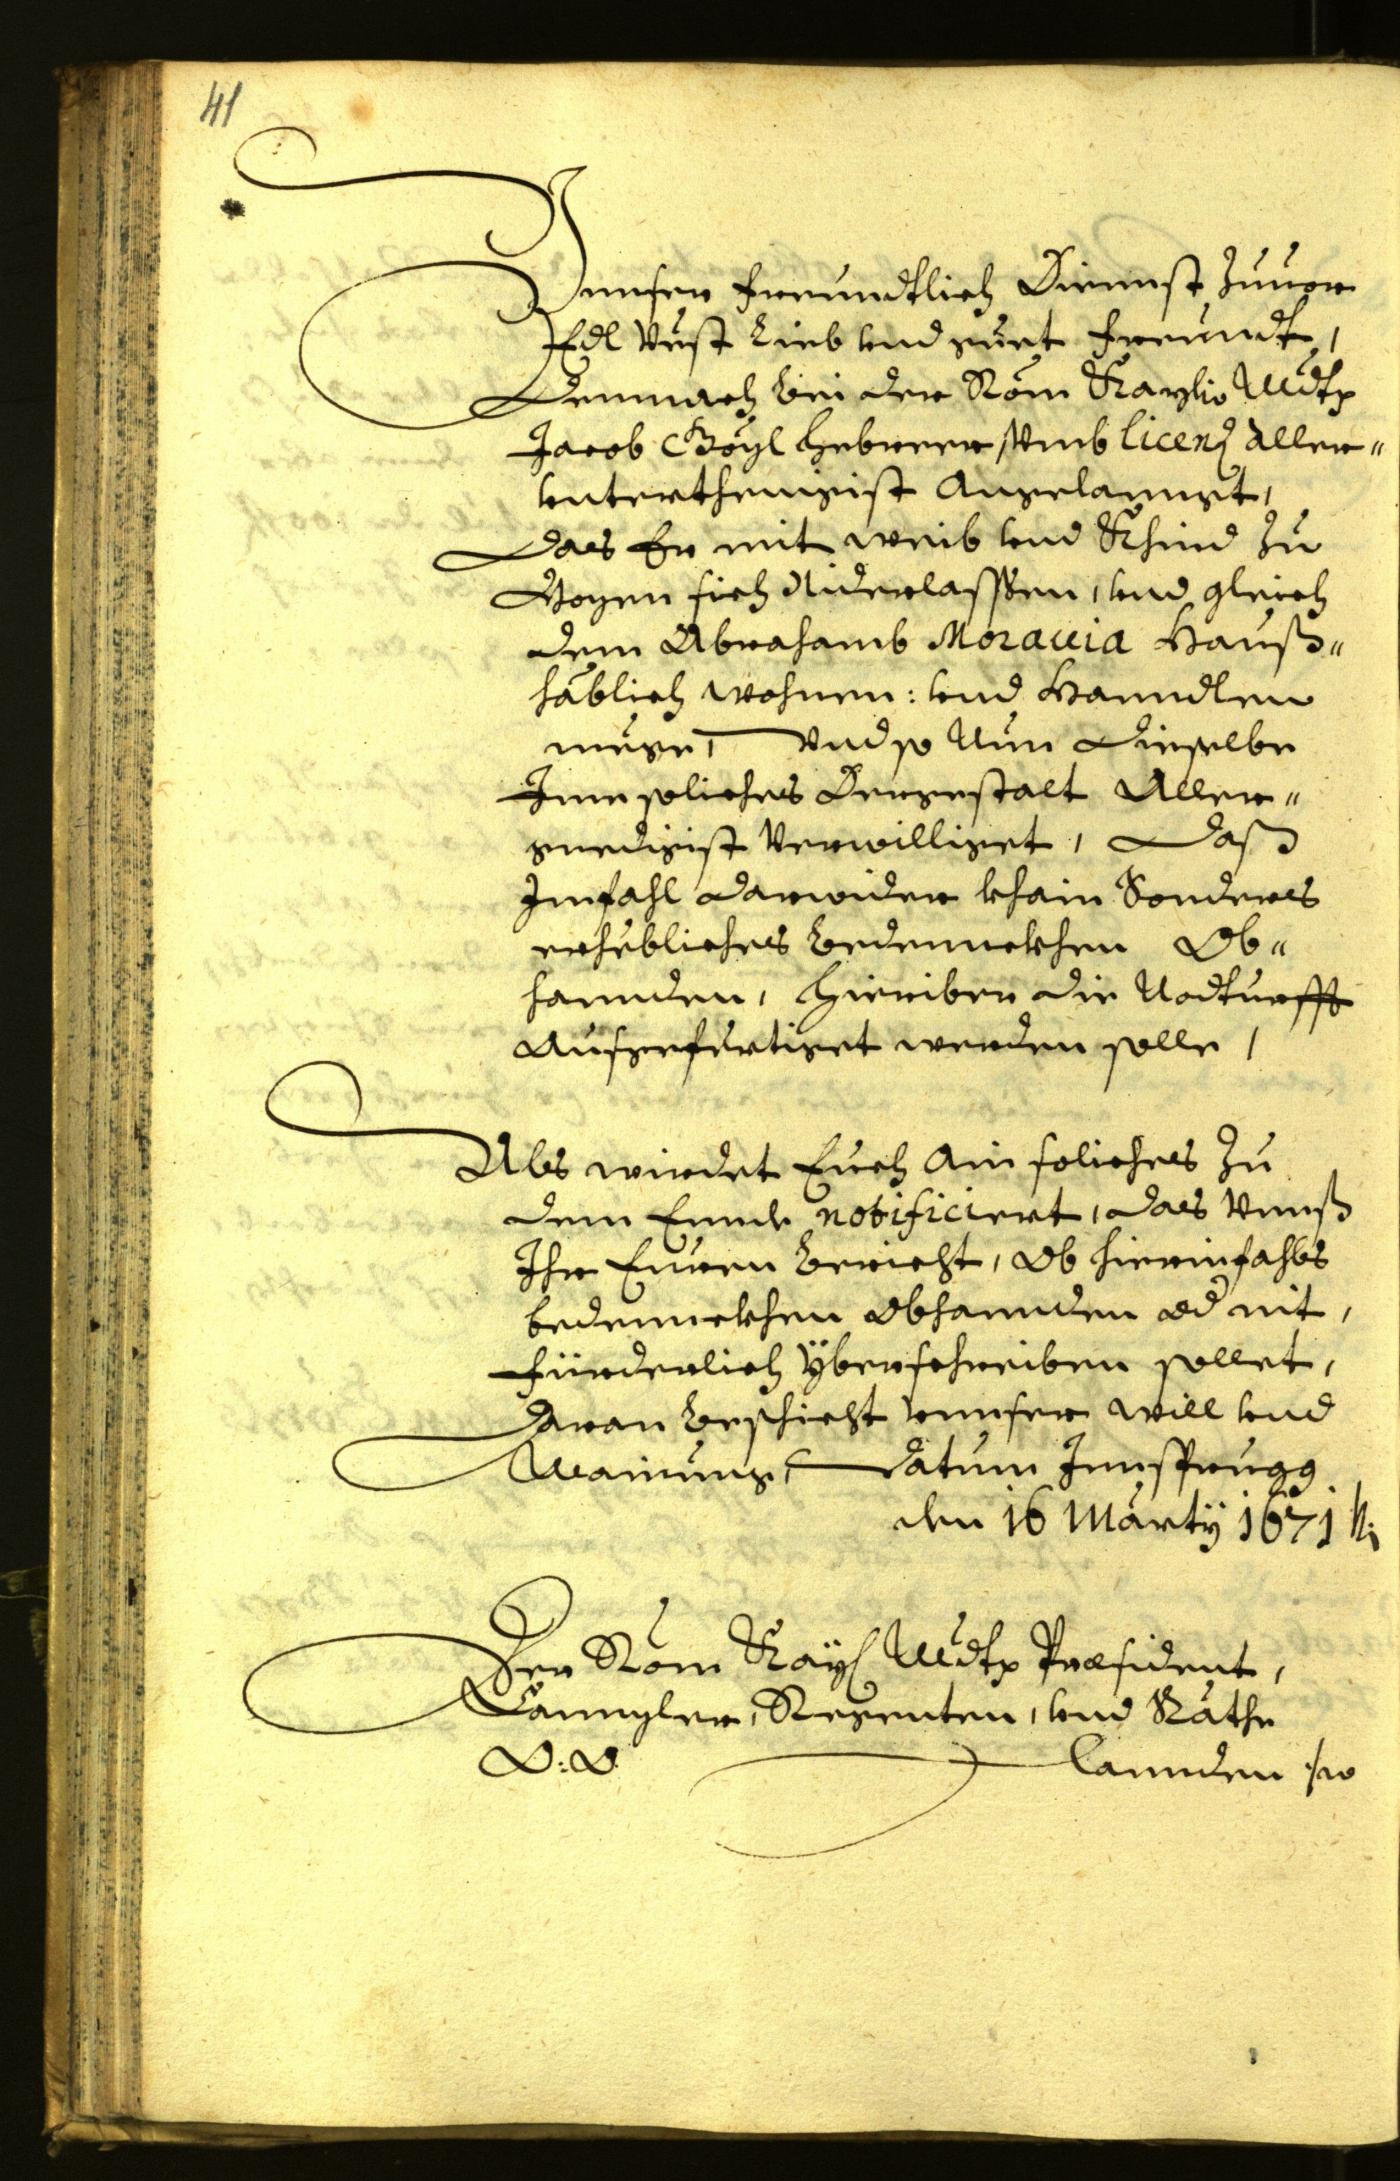 41
Vnnser freundtlich Diennst Zuuor
Edl Vesst Lieb vnd guet freundt,
Demnach bei der Röm Kayßs Maytt
Jacob Göyl Hebreer, vmb licenz Aller„
vnterthenigist Angelanngt,
Das Er mit weib vnd Khind Zu
Bozen sich Niderlassen, vnd gleich
dem Abrahamb Morauia Hauß„
häblich wohnen: vnd Hanndlen
müge, Vnd so Nun Dieselbe
Inn soliches Dergestalt Aller„
gnedigist Verwilliget, Daß
Imfahl darwider khain Sonders
erhebliches bedennckhen Ob„
hannden, hierüber die Nodturfft
Aufgefertiget werden solle,
Als wirdet Euch Ain soliches Zu
dem Ennde notificiert, das Vnnß
Ihr Euren Bericht, Ob hierinfahls
bedennckhen obhannden od nit,
fürderlich yberschreiben sollet,
Daran beschicht vnnser will vnd
Mainung, Datum Innsprugg
den 16 Martÿ 1671
Der Röm Kay Maytt Præsident,
Cannzler, Regenten, vnd Räthe
O: Ö Lannden